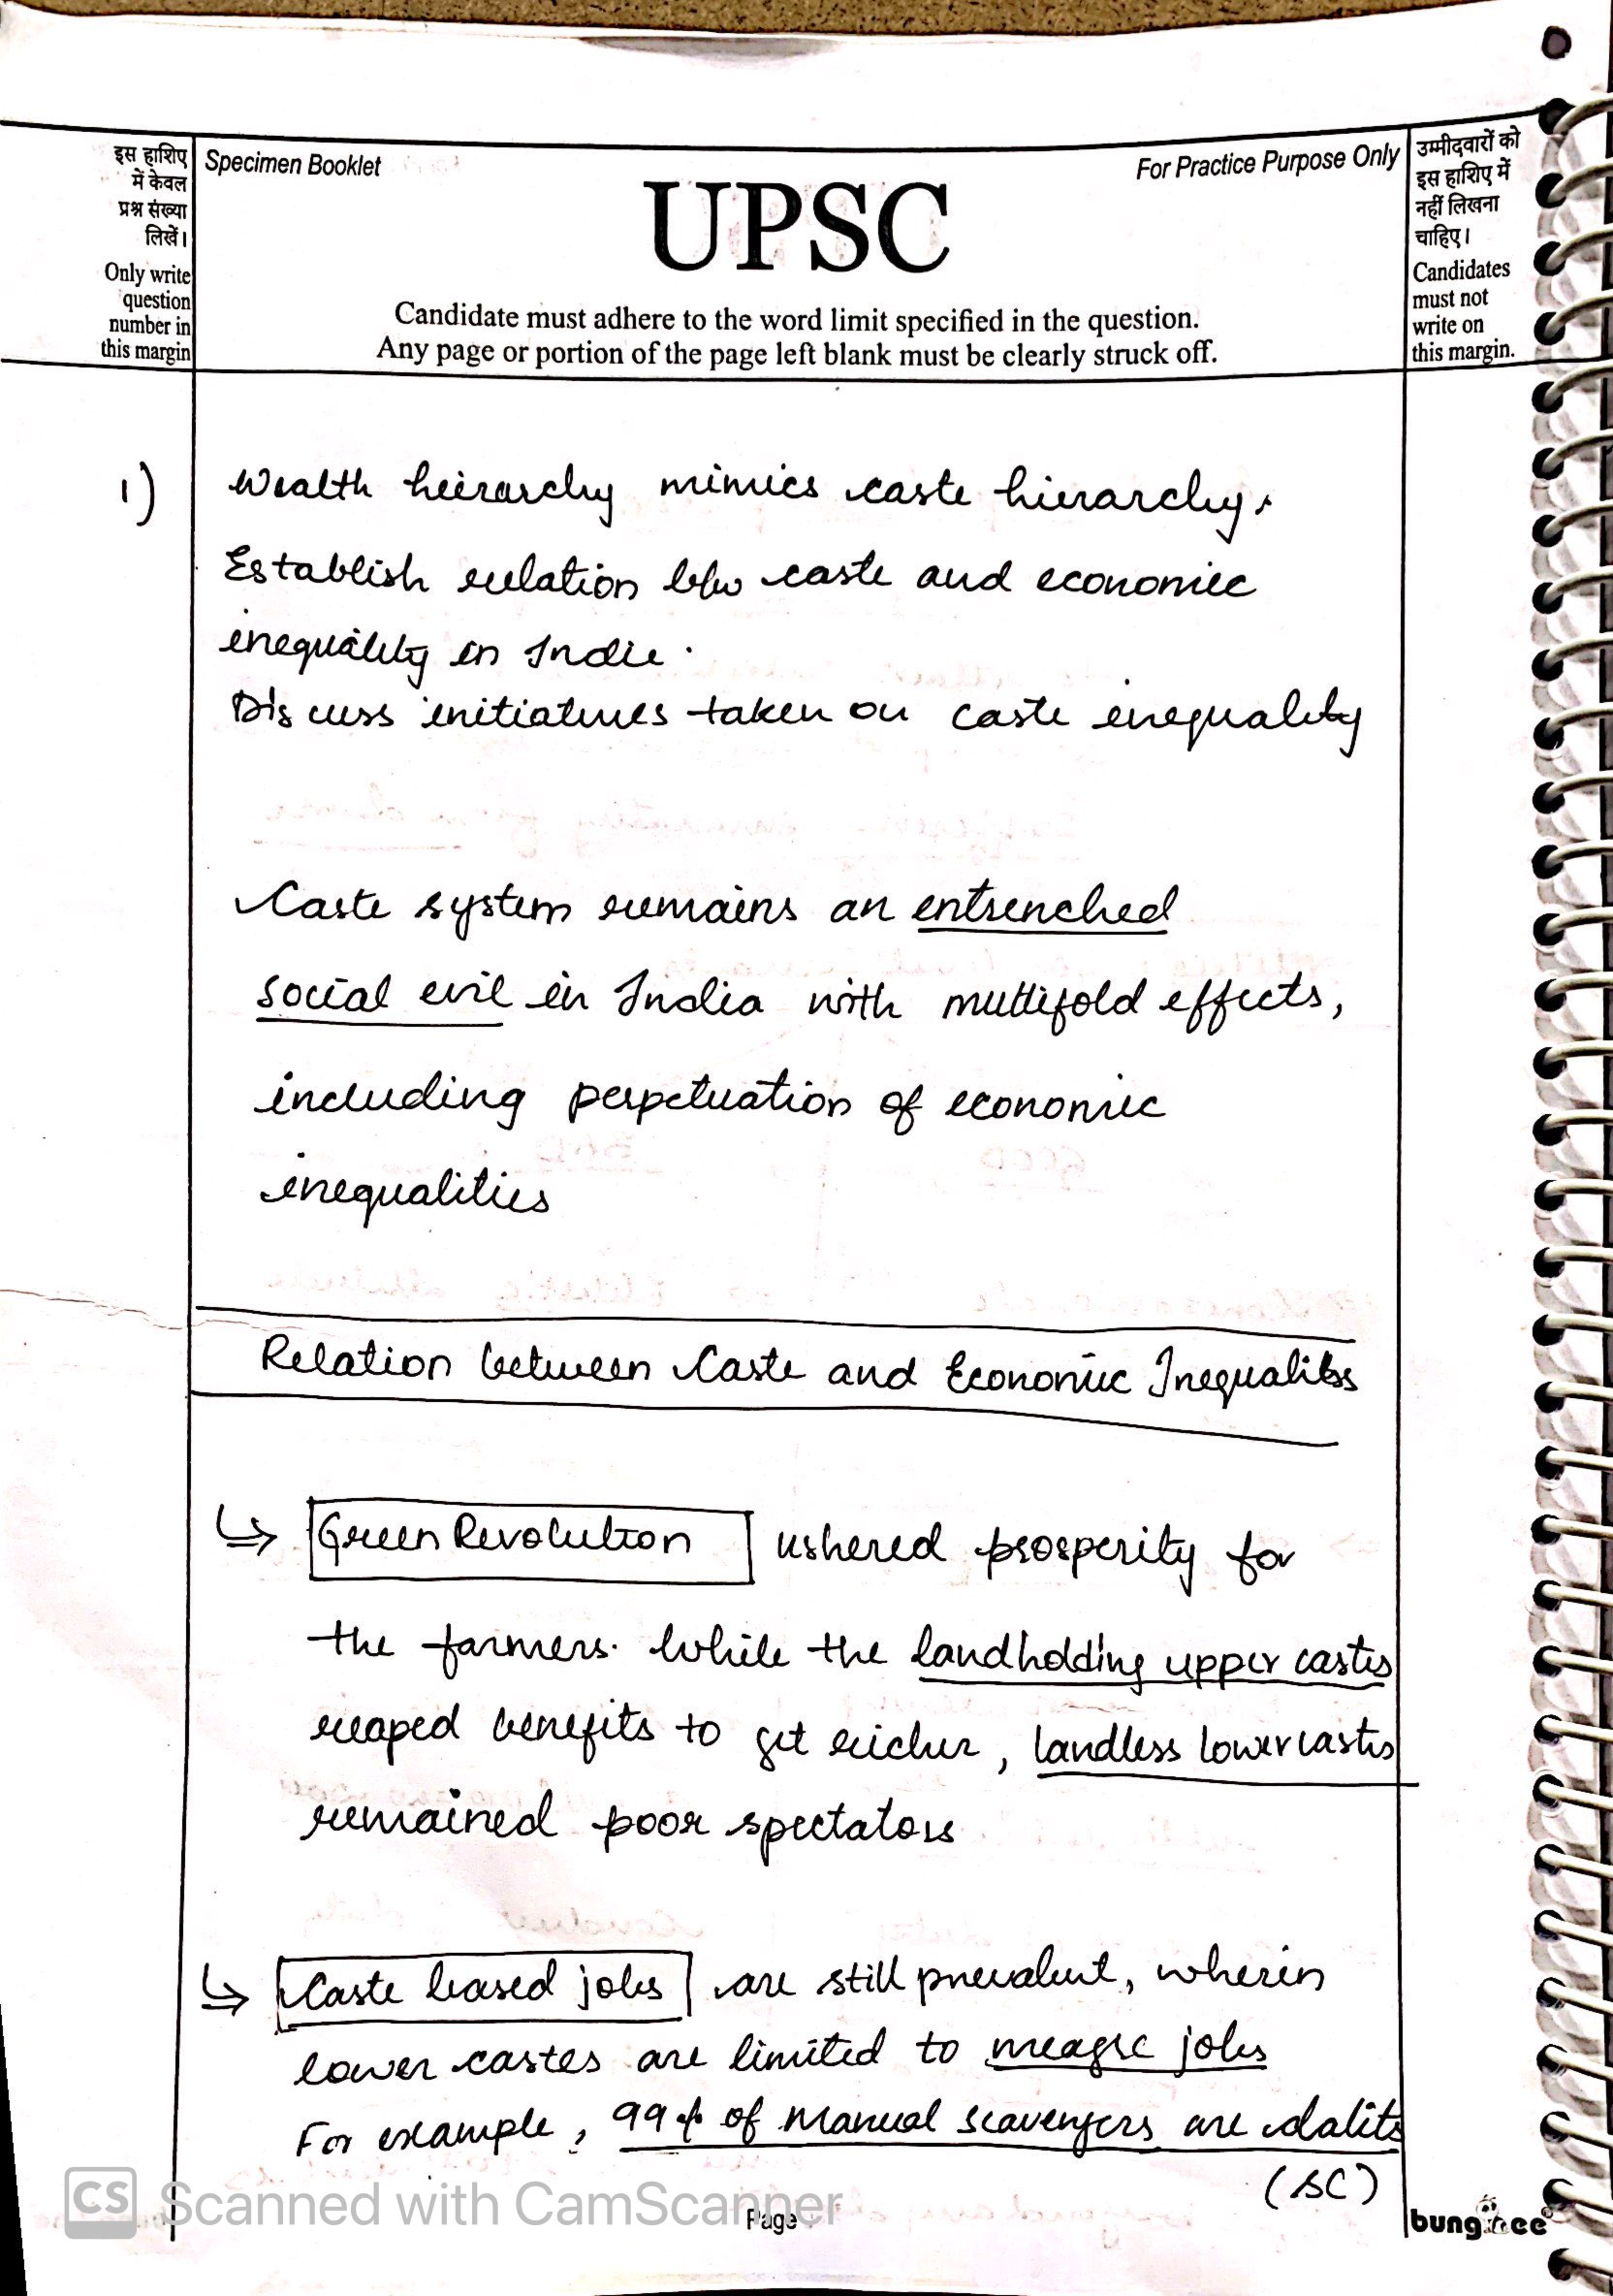 इस हाशिए
में केवल
प्रश्न संख्या
लिखें।
Only write
question
number in
this margin
Specimen Booklet
For Practice Purpose Only
UPSC
Candidate must adhere to the word limit specified in the question.
Any page or portion of the page left blank must be clearly struck off.
उम्मीदवारों को
इस हाशिए में
नहीं लिखना
चाहिए।
Candidates
must not
write on
this margin.
1) Wealth heirarchy mimics caste hierarchy.
Establish relation b/w caste and economic
inequality in India.
Discuss initiatives taken on caste inequality
Caste system remains an entrenched
social evil in India with multifold effects,
including perpetuation of economic
inequalities
Relation between Caste and Economic Inequalities
↳ Green Revolution ushered prosperity for
the farmers. While the landholding upper castes
reaped benefits to get richer, landless lower castes
remained poor spectators
↳ Caste based jobs are still prevalent, wherein
lower castes are limited to meagre jobs
For example, 99% of manual scavengers are dalits
(SC)
CS Scanned with CamScanner
Page
bungee